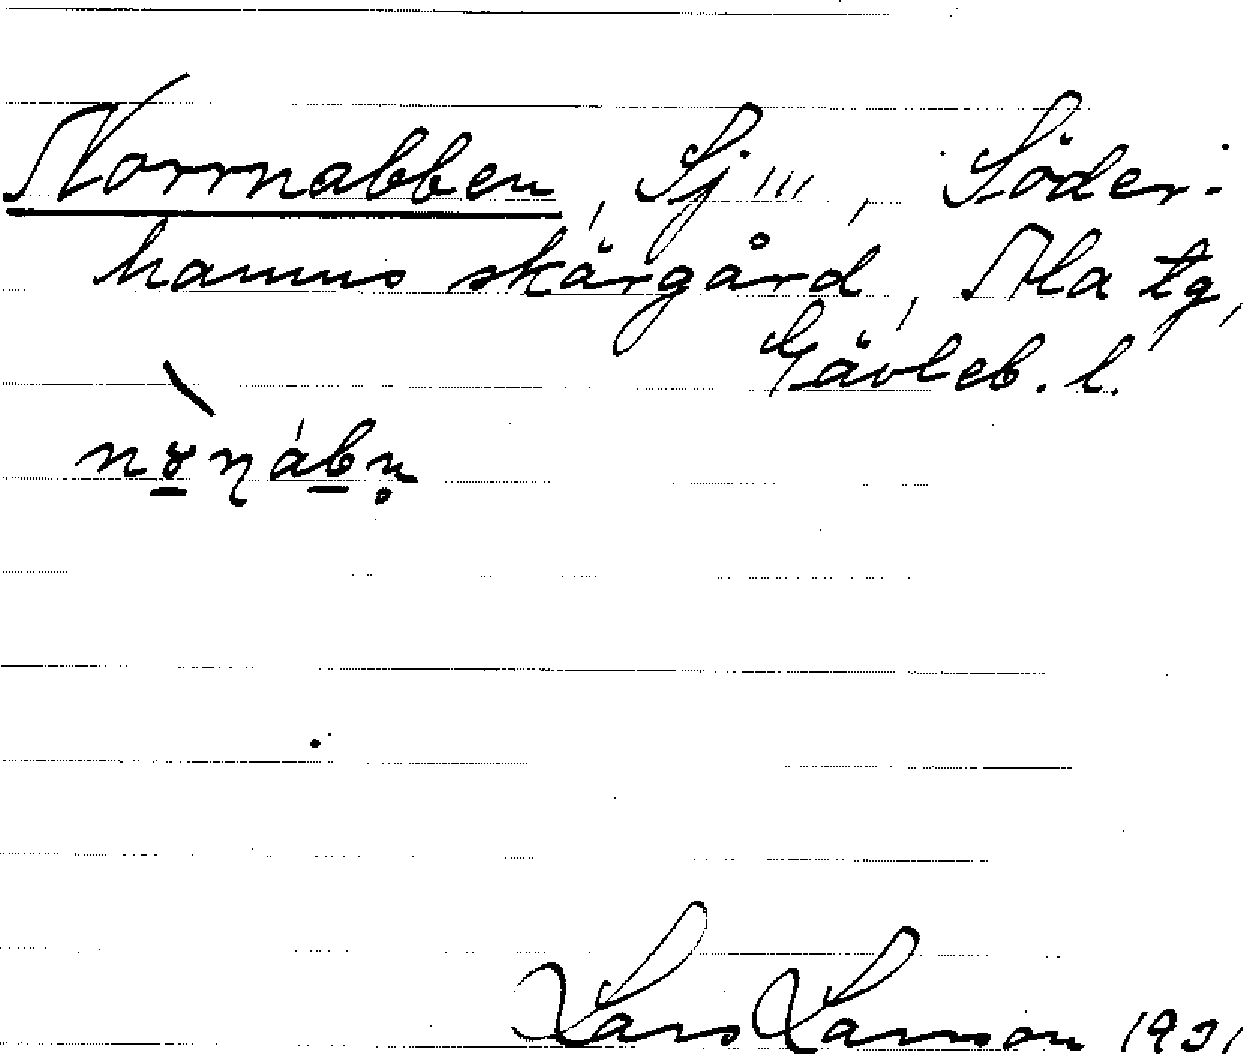 Norrnabben, Sj''', Söder-
hamns skärgård, Ala tg,
Gävleb. l.
Lars Larsson 1931